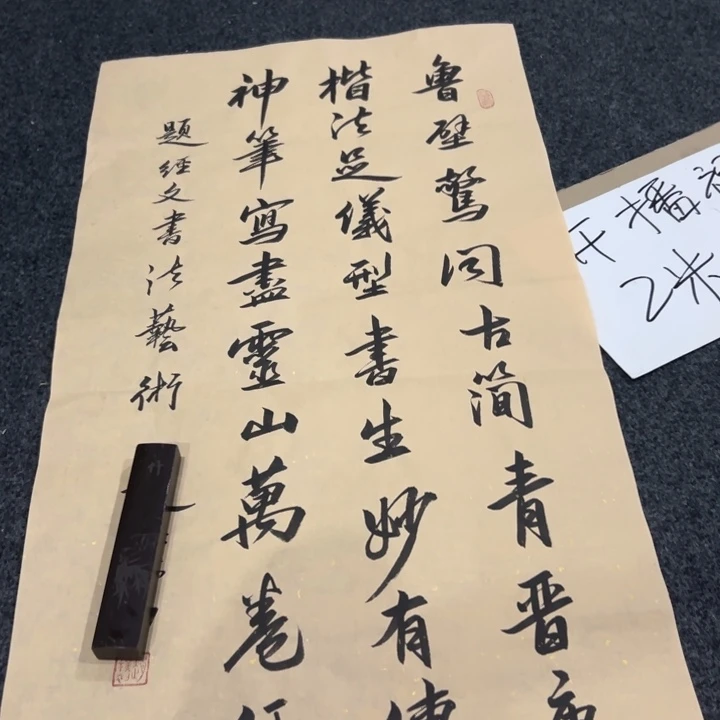 魯壁驚同古簡青晉
楷法足儀型書生妙有
神筆寫盡靈山萬卷
題經文書法藝術
播
2米